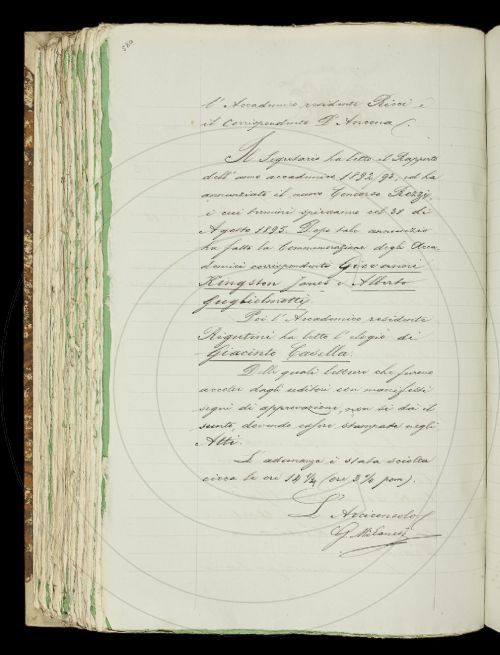 580
l'Accademico residente Ricci e
il Corrispondente D'Ancona.
Il Segretario ha letto il Rapporto
dell'anno accademico 1892-93, ed ha
annunziato il nuovo Concorso Rezzi,
i cui termini spireranno col 31 di
Agosto 1895. Dopo tale annunzio
ha fatto la Commemorazione degli Acca-
demici corrispondenti Giovanni
Kingston James e Alberto
Guglielmotti.
Poi l'Accademico residente
Rigutini ha letto l'elogio di
Giacinto Casella.
Delle quali letture che furono
accolte dagli uditori con manifesti
segni di approvazione, non si dà il
sunto, dovendo essere stampate negli
Atti.
L'adunanza è stata sciolta
circa le ore 14 ¼ (ore 2 ¼ pom).
L'Arciconsolo
G. Milanesi